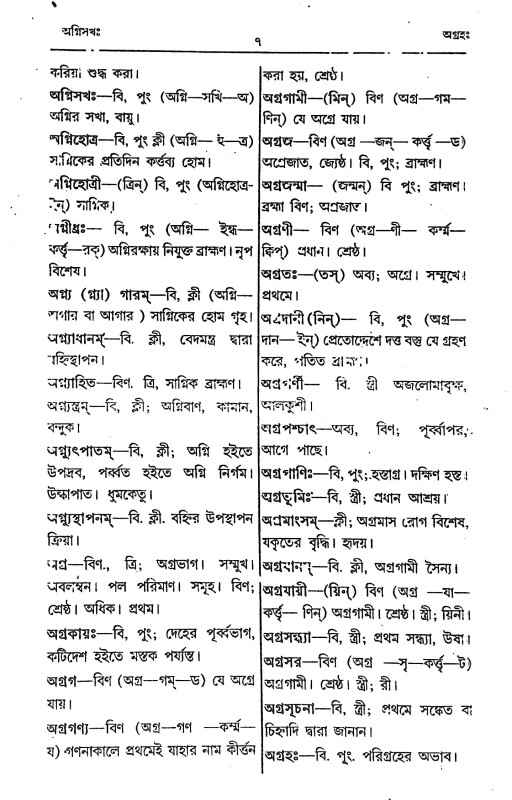 অগ্নিসখঃ
৭
অগ্রহঃ
করিয়া শুদ্ধ করা।
অগ্নিসখঃ—বি, পুং (অগ্নি—সখি—অ)
অগ্নির সখা, বায়ু।
অগ্নিহোত্র—বি, পুং ক্লী (অগ্নি— হু—ত্র)
সাগ্নিকের প্রতিদিন কর্ত্তব্য হোম।
অগ্নিহোত্রী—(ত্রিন্) বি, পুং (অগ্নিহোত্র-
ইন্) সাগ্নিক।
অগ্নীধ্রঃ— বি, পুং (অগ্নি— ইন্ধ—
কর্ত্তৃ—রক্) অগ্নিরক্ষায় নিযুক্ত ব্রাহ্মণ। নৃপ
বিশেষ।
অগ্ন্য (গ্ন্যা) গারম্—বি, ক্লী (অগ্নি—
অগার বা আগার ) সাগ্নিকের হোম গৃহ।
অগ্ন্যাধানম্—বি. ক্লী, বেদমন্ত্র দ্বারা
বহ্নিস্থাপন।
অগ্ন্যাহিত—বিণ. ত্রি, সাগ্নিক ব্রাহ্মণ।
অগ্ন্যস্ত্রম্—বি, ক্লী; অগ্নিবাণ, কামান,
বন্দুক।
অগ্ন্যুৎপাতম্—বি, ক্লী; অগ্নি হইতে
উপদ্রব, পর্ব্বত হইতে অগ্নি নির্গম।
উল্কাপাত। ধুমকেতু।
অগ্ন্যুস্থাপনম্—বি. ক্লী. বহ্নির উপস্থাপন
ক্রিয়া।
অগ্র—বিণ., ত্রি; অগ্রভাগ। সম্মুখ।
অবলম্বন। পল পরিমাণ। সমূহ। বিণ;
শ্রেষ্ঠ। অধিক। প্রথম।
অগ্রকায়ঃ—বি, পুং; দেহের পূর্ব্বভাগ,
কটিদেশ হইতে মস্তক পর্য্যন্ত।
অগ্রগ—বিণ (অগ্র—গম্—ড) যে অগ্রে
যায়।
অগ্রগণ্য—বিণ (অগ্র—গণ —কর্ম্ম—
য) গণনাকালে প্রথমেই যাহার নাম কীর্ত্তন
করা হয়, শ্রেষ্ঠ।
অগ্রগামী—(মিন্) বিণ (অগ্র—গম—
ণিন্) যে অগ্রে যায়।
অগ্রজ—বিণ (অগ্র —জন্— কর্ত্তৃ —ড)
অগ্রেজাত, জ্যেষ্ঠ। বি, পুং; ব্রাহ্মণ।
অগ্রজন্মা— (জন্মন্) বি পুং; ব্রাহ্মণ।
ব্রহ্মা বিণ; অগ্রজাত।
অগ্রণী— বিণ (অগ্র—ণী— কর্ম্ম—
ক্বিপ্) প্রধান। শ্রেষ্ঠ।
অগ্রতঃ—(তস্) অব্য; অগ্রে। সম্মুখে।
প্রথমে।
অগ্রদানী(নিন্)— বি, পুং (অগ্র—
দান—ইন্) প্রেতোদ্দেশে দত্ত বস্তু যে গ্রহণ
করে, পতিত ব্রাহ্মণ।
অগ্রপর্ণী— বি. স্ত্রী অজলোমাবৃক্ষ,
আলকুশী।
অগ্রপশ্চাৎ—অব্য, বিণ; পূর্ব্বাপর,
আগে পাছে।
অগ্রপাণিঃ—বি, পুং; হস্তাগ্র। দক্ষিণ হস্ত।
অগ্রভূমিঃ—বি, স্ত্রী; প্রধান আশ্রয়।
অগ্রমাংসম্—ক্লী; অগ্রমাস রোগ বিশেষ,
যকৃতের বৃদ্ধি। হৃদয়।
অগ্রযানম্—বি. ক্লী, অগ্রগামী সৈন্য।
অগ্রযায়ী—(য়িন্) বিণ (অগ্র —যা—
কর্ত্তৃ— ণিন্) অগ্রগামী। শ্রেষ্ঠ। স্ত্রী; য়িনী।
অগ্রসন্ধ্যা—বি, স্ত্রী; প্রথম সন্ধ্যা, উষা।
অগ্রসর—বিণ (অগ্র —সৃ—কর্ত্তৃ—ট)
অগ্রগামী। শ্রেষ্ঠ। স্ত্রী; রী।
অগ্রসূচনা—বি, স্ত্রী; প্রথমে সঙ্কেত বা
চিহ্নাদি দ্বারা জানান।
অগ্রহঃ—বি. পুং. পরিগ্রহের অভাব।